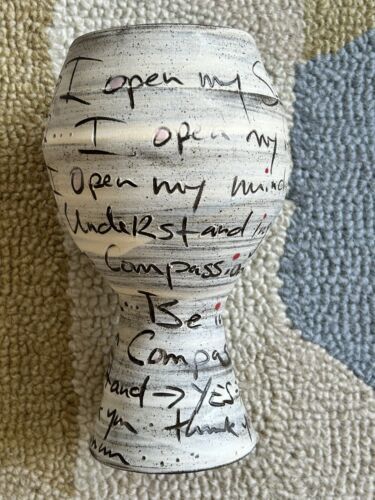 I open my S
... I open my
I open my mind
UndeRstandin
Compassi
... Be i
Compas
tand → YES
thank